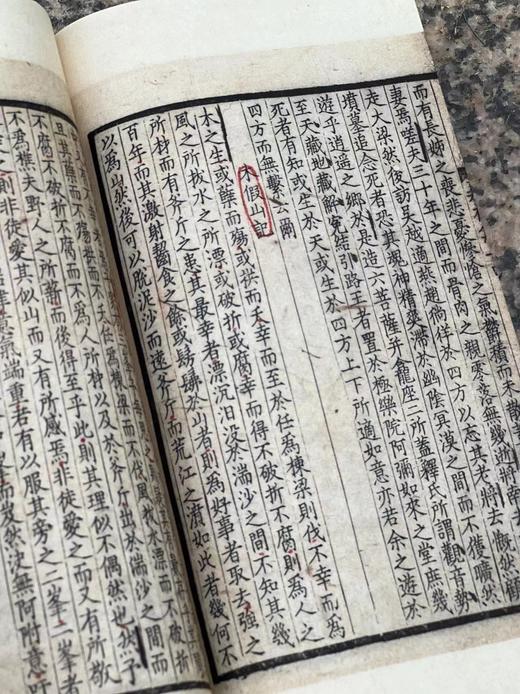 而有長姊之喪悲憂慘愴之氣鬱積而
妻焉嗟夫三十年之間而骨肉之親零落無幾逝將南去
走大梁然後訪吳越適燕趙徜徉於四方以忘其老將去慨然顧
墳墓追念死者恐其魂神精爽滯於幽陰冥漠之間而不獲曠然
遊乎逍遙之鄉於是造六菩薩并龕座二所蓋釋氏所謂觀音勢
至天藏地藏解冤結引路王者置於極樂院阿彌如來之堂庶幾
死者有知或生於天或生於四方上下所適如意亦若余之遊於
四方而無繫云爾
木假山記
木之生或蘖而殤或拱而夭幸而至於任為棟梁則伐不幸而為
風之所拔水之所漂或破折或腐幸而得不破折不腐則為人之
所材而有斧斤之患其最幸者漂沉汨沒於湍沙之間不知其幾
百年而其激射齧食之餘或髣髴於山者則為好事者取去強之
以為山然後可以脫泥沙而遠斧斤而荒江之濆如此者幾何不
且其蘖而不殤拱而不夭任為棟梁而不伐風拔水漂而不破折
不破折不腐而不為人所材以及於斧斤出於湍沙之間而
不為樵夫野人之所薪而後得至乎此則其理似不偶然也然予
之則非徒愛其似山而又有所感焉非徒愛之而又有所敬
意氣端重若有以服其旁之二峯二峯者
而岌然決無阿附意吁